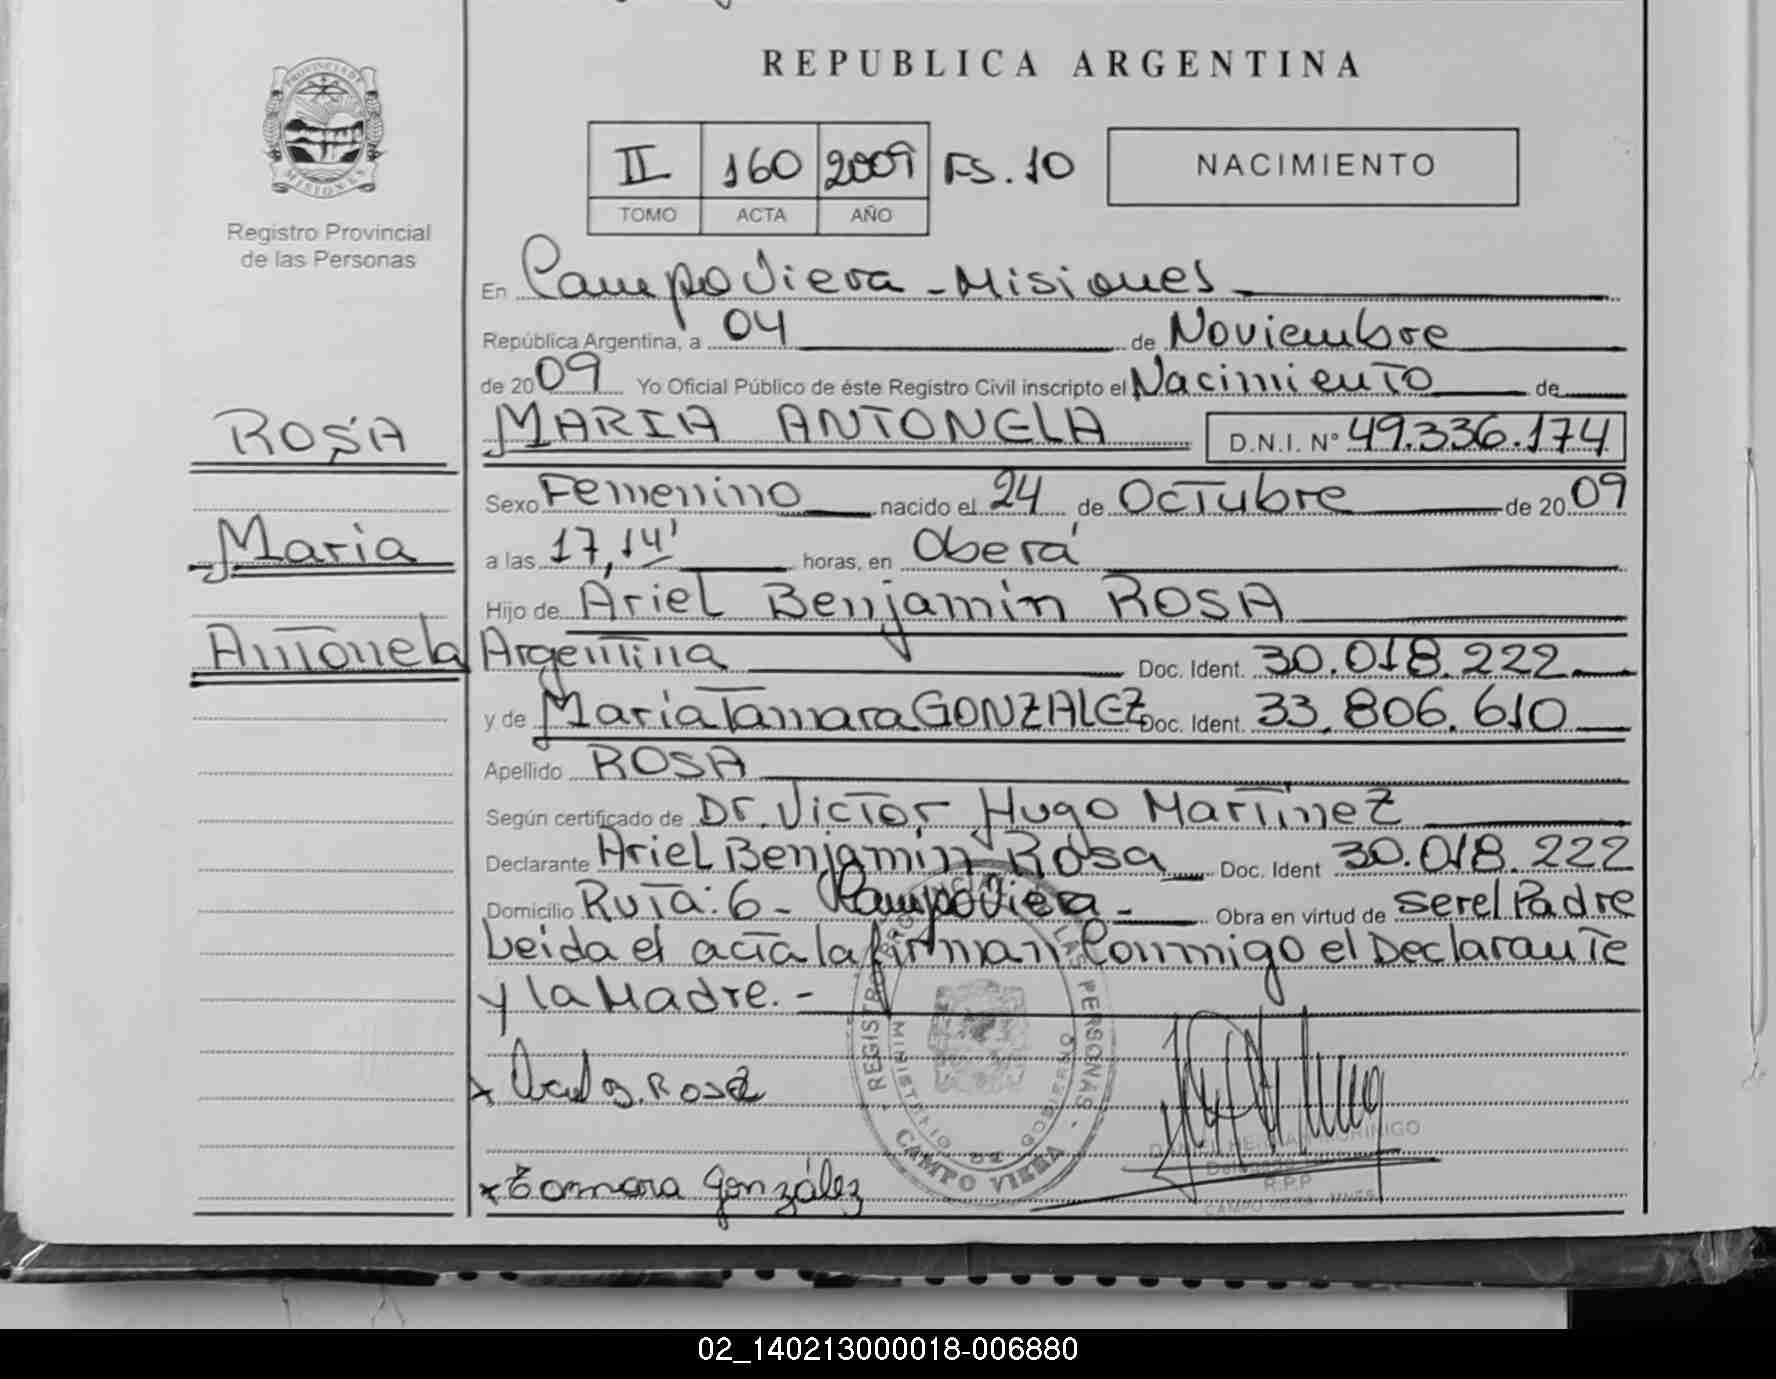 REPUBLICA ARGENTINA
PROVINCIA DE MISIONES
Registro Provincial
de las Personas
II 160 2009 FS.10
TOMO ACTA AÑO
NACIMIENTO
En Campo Viera - Misiones
República Argentina, a 04 de Noviembre
de 2009 Yo Oficial Público de éste Registro Civil inscripto el Nacimiento de
ROSA
MARIA ANTONELA D.N.I. Nº 49.336.174
Sexo Femenino nacido el 24 de Octubre de 2009
Maria
a las 17,14' horas, en Oberá
Hijo de Ariel Benjamin ROSA
Antonela
Argentina Doc. Ident. 30.018.222
y de Maria Tamara GONZALEZ Doc. Ident. 33.806.610
Apellido ROSA
Según certificado de Dr. Victor Hugo Martinez
Declarante Ariel Benjamin Rosa Doc. Ident 30.018.222
Domicilio Ruta: 6 - Campo Viera - Obra en virtud de ser el Padre
Leida el acta la firman Conmigo el Declarante
y la Madre. -
REGISTRO PROVINCIAL DE LAS PERSONAS
MINISTERIO DE GOBIERNO
CAMPO VIERA
x Rosa
x Tamara González
R.P.P
02_140213000018-006880